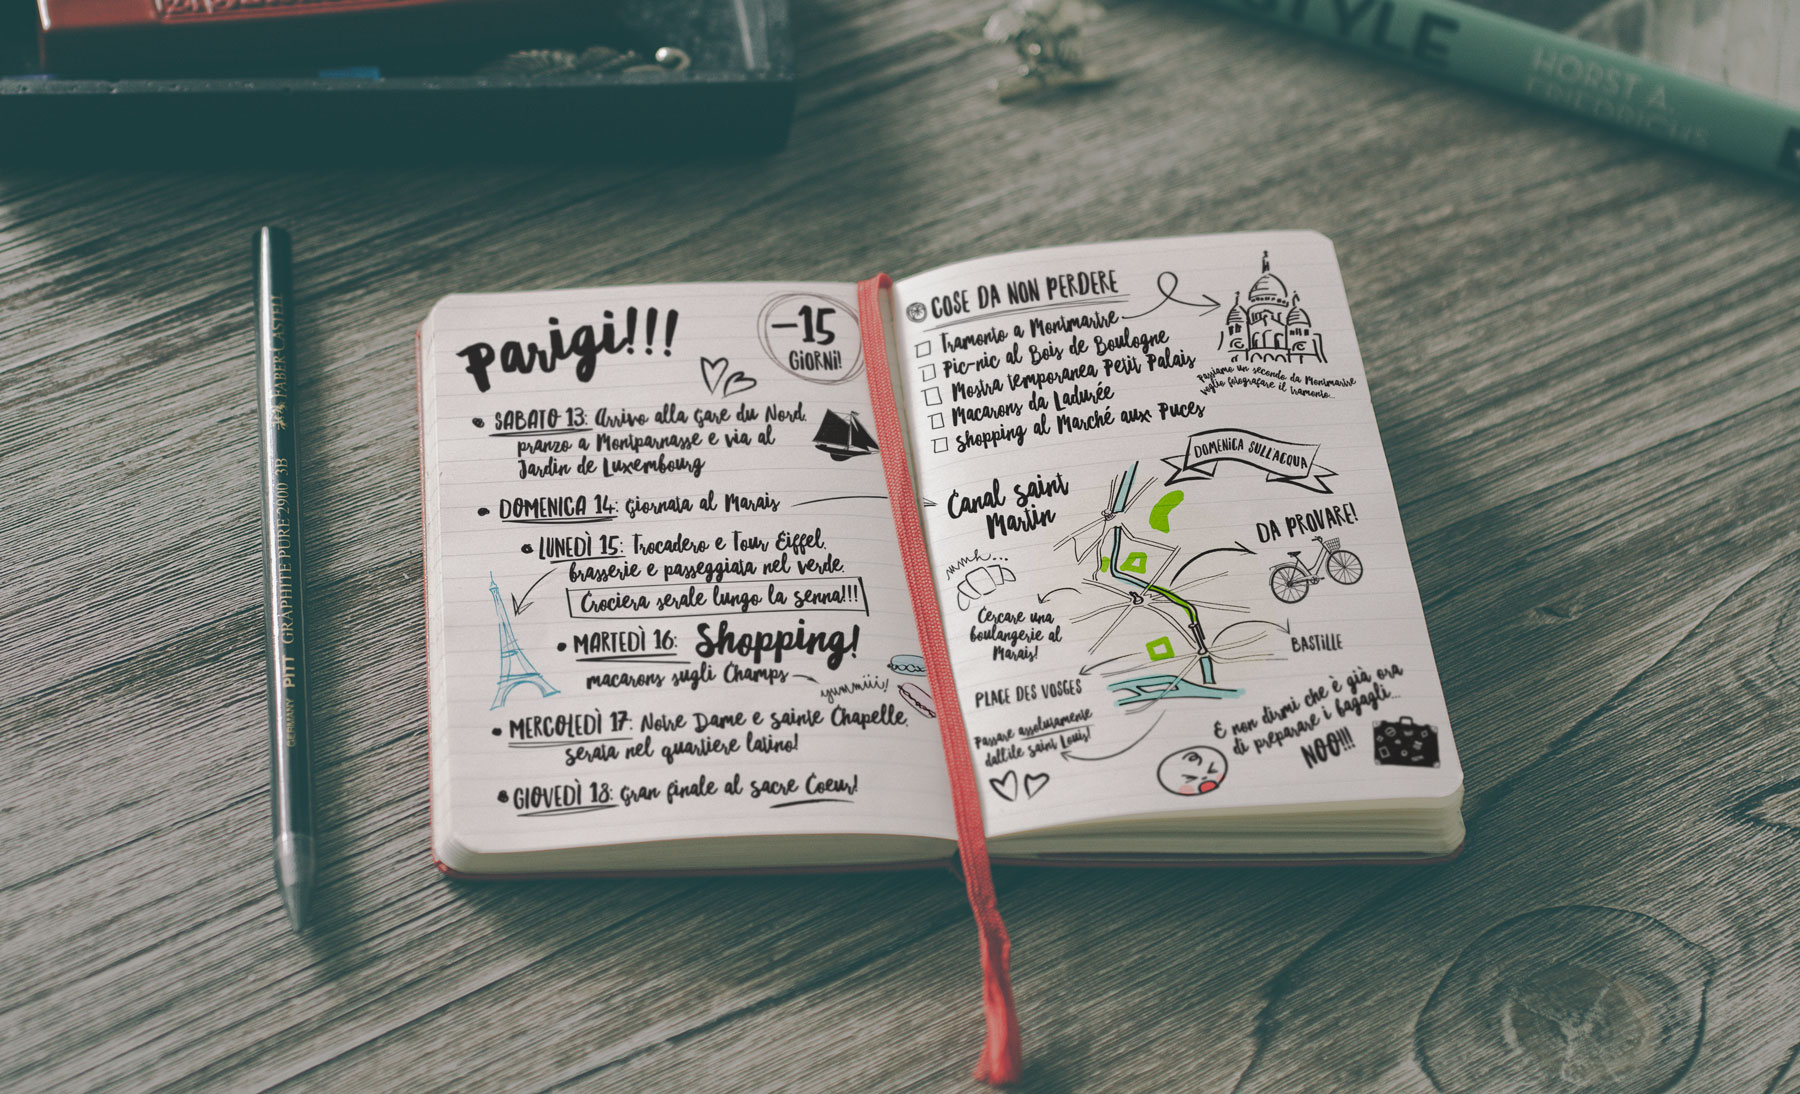 STYLE
HORST A.
FRIEDRICHS
FABER CASTELL
PITT GRAPHITE PURE 2900 3B
GERMANY
Parigi!!!
-15
GIORNI!
SABATO 13: Arrivo alla Gare du Nord,
pranzo a Montparnasse e via al
Jardin de Luxembourg
DOMENICA 14: Giornata al Marais
LUNEDÌ 15: Trocadero e Tour Eiffel,
brasserie e passeggiata nel verde.
Crociera serale lungo la Senna!!!
MARTEDÌ 16: Shopping!
macarons sugli Champs
yummiii!
MERCOLEDÌ 17: Notre Dame e Sainte Chapelle,
serata nel quartiere latino!
GIOVEDÌ 18: Gran finale al Sacre Coeur!
COSE DA NON PERDERE
Tramonto a Montmartre
Pic-nic al Bois de Boulogne
Mostra temporanea Petit Palais
Macarons da Ladurée
Shopping al Marché aux Puces
Passiamo un secondo da Montmartre
voglio fotografare il tramonto...
DOMENICA SULL'ACQUA
Canal Saint
Martin
DA PROVARE!
mmh...
Cercare una
boulangerie al
Marais!
BASTILLE
PLACE DES VOSGES
Passare assolutamente
dall'ile Saint Louis!
E non dirmi che è già ora
di preparare i bagagli...
NOO!!!